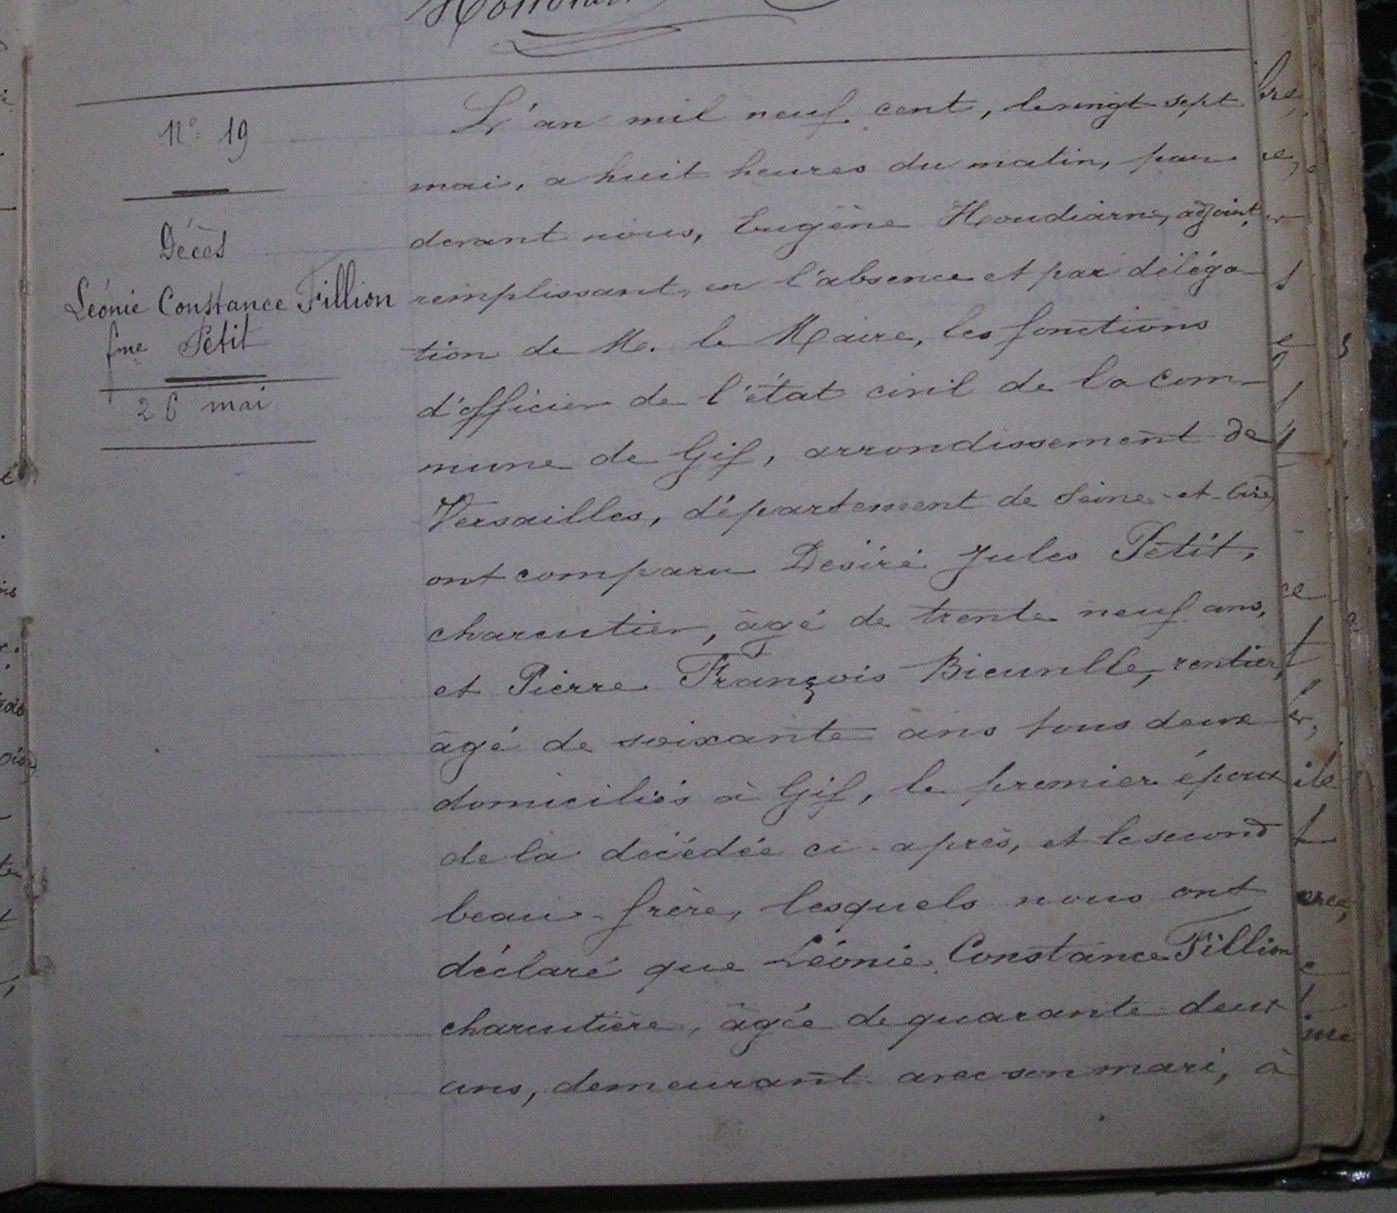 N° 19
Décès
Léonie Constance Fillion
fme Petit
26 mai
L'an mil neuf cent, le vingt-sept
mai, a huit heures du matin, par
devant nous, Eugène Houdiarne, adjoint,
remplissant, en l'absence et par déléga-
tion de M. le Maire, les fonctions
d'officier de l'état civil de la com-
mune de Gif, arrondissement de
Versailles, département de Seine-et-Oise,
ont comparu Désiré Jules Petit,
charcutier, âgé de trente neuf ans,
et Pierre François rentier,
âgé de soixante ans tous deux
domiciliés à Gif, le premier époux
de la décédée ci-après, et le second
beau-frère, lesquels nous ont
déclaré que Léonie Constance Fillion
charcutière, âgée de quarante deux
ans, demeurant avec son mari, à